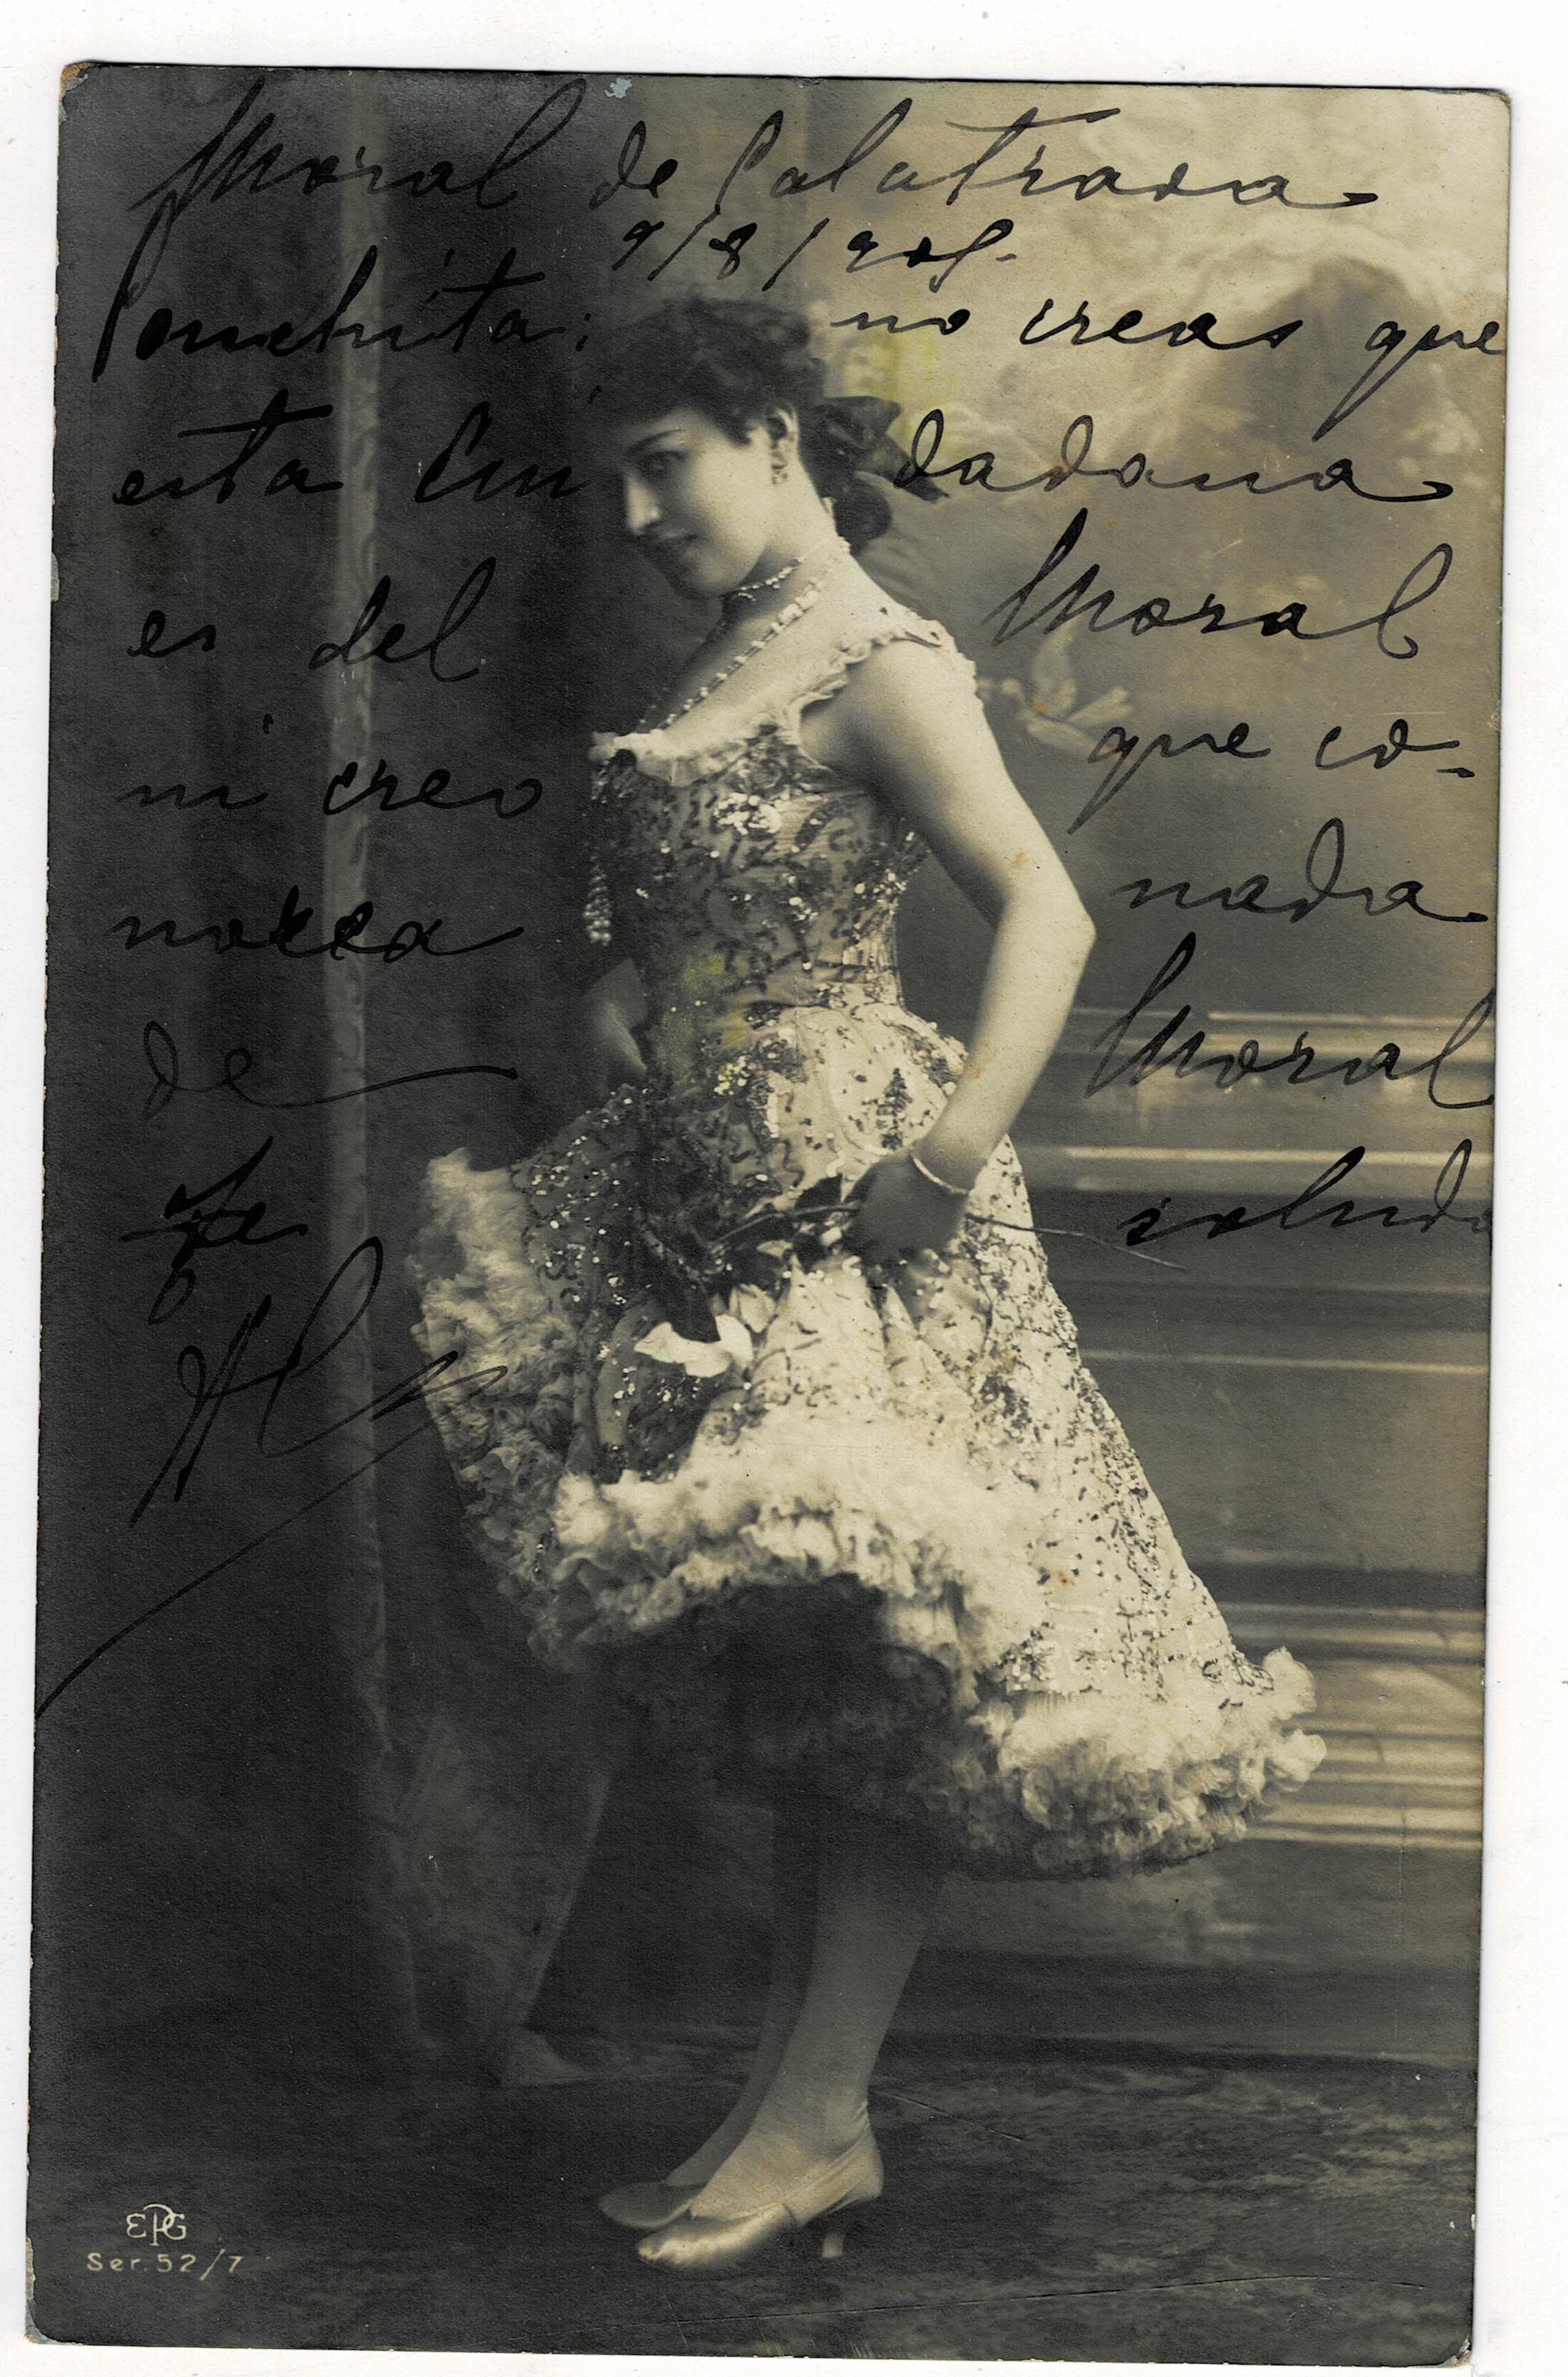 Moral de Calatrava
9/8/905.
Conchita: no creas que
esta Ciudadana
es del Moral
ni creo que co-
nozca nada
de Moral
Te saluda
Ser. 52/7